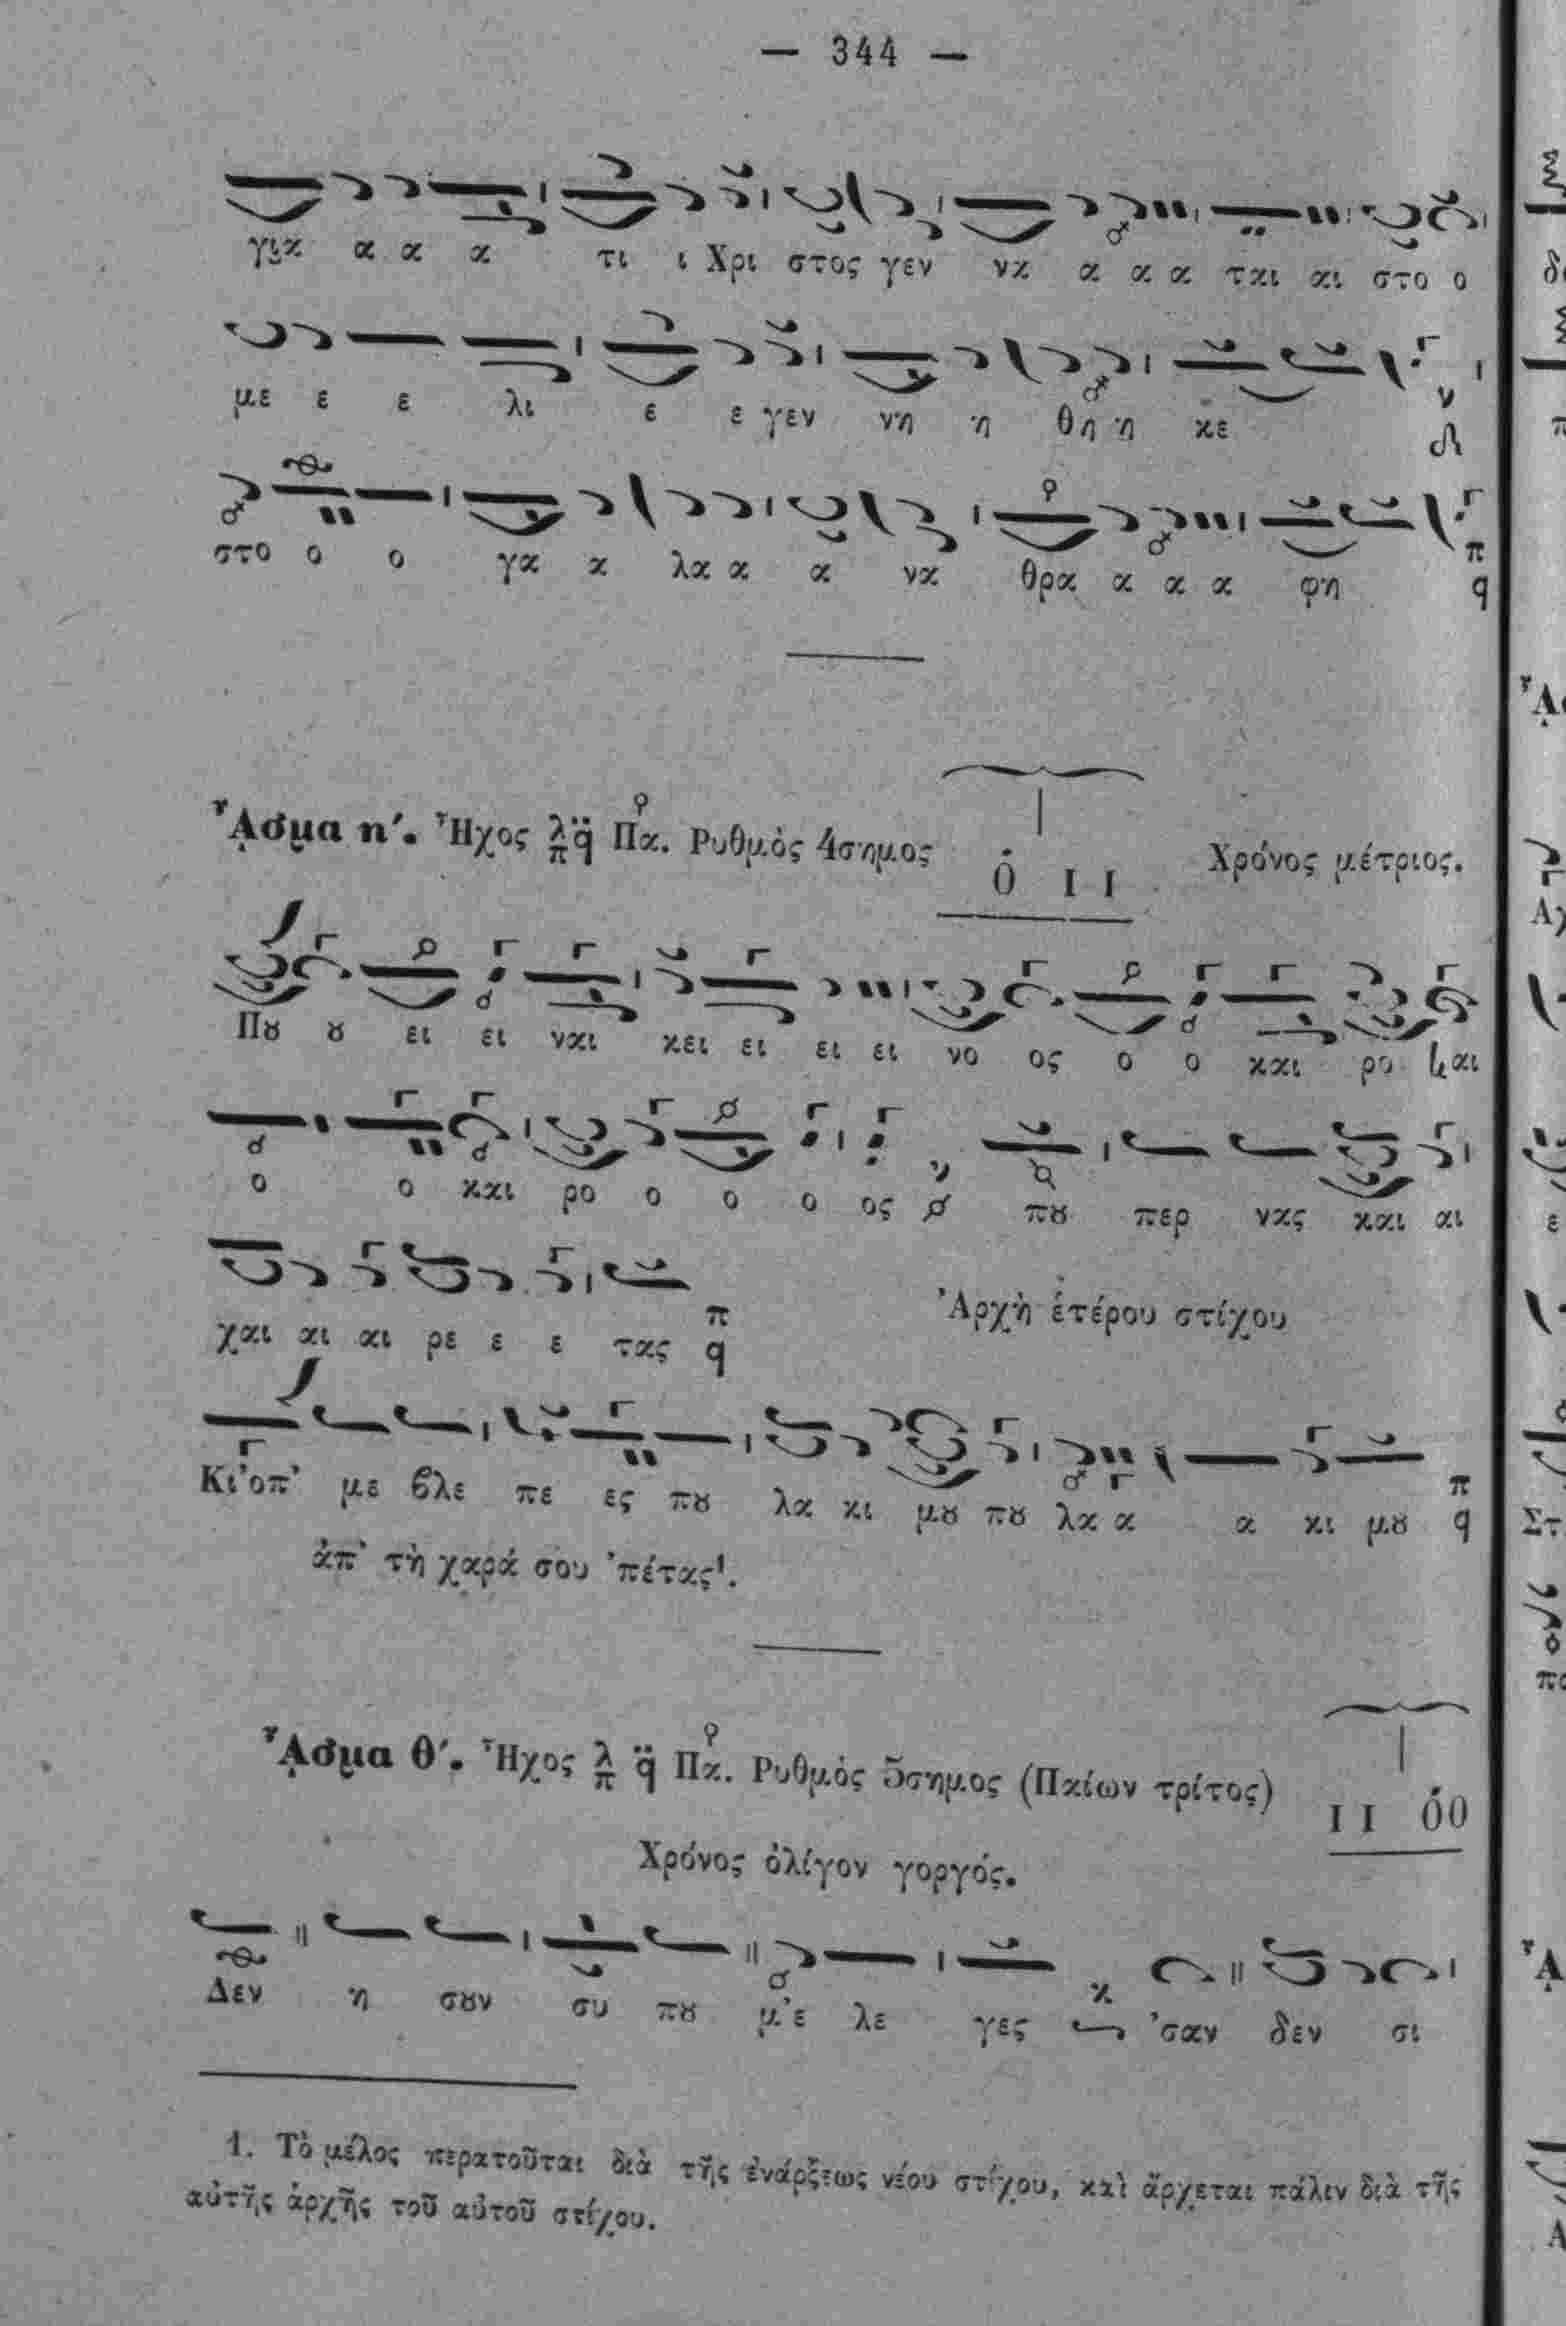 — 344 —
για α α α τι ι Χρι στος γεν να α α α ται αι στο ο
με ε ε λι ε ε γεν νη η θη η κε
στο ο ο γα α λα α α να θρα α α α φη
ᾎσμα η΄. Ἦχος λ π q Πα. Ρυθμὸς 4σημος Ο Ι Ι Χρόνος μέτριος.
Πȣ ȣ ει ει ναι κει ει ει ει νο ος ο ο και ρο και
ο ο και ρο ο ο ο ος πȣ περ νας και αι
χαι αι αι ρε ε ε τας Ἀρχὴ ἑτέρου στίχου
Κι'οπ' με ϐλε πε ες πȣ λα κι μȣ πȣ λα α α κι μȣ
ἀπ' τὴ χαρά σου 'πέτας¹.
ᾎσμα θ΄. Ἦχος λ π q Πα. Ρυθμὸς 5σημος (Παίων τρίτος) Ι Ι ΟΟ
Χρόνος ὀλίγον γοργός.
Δεν η σȣν συ πȣ μ'ε λε γες 'σαν δεν σι
1. Τὸ μέλος περατοῦται διὰ τῆς ἐνάρξεως νέου στίχου, καὶ ἄρχεται πάλιν διὰ τῆς
αὐτῆς ἀρχῆς τοῦ αὐτοῦ στίχου.